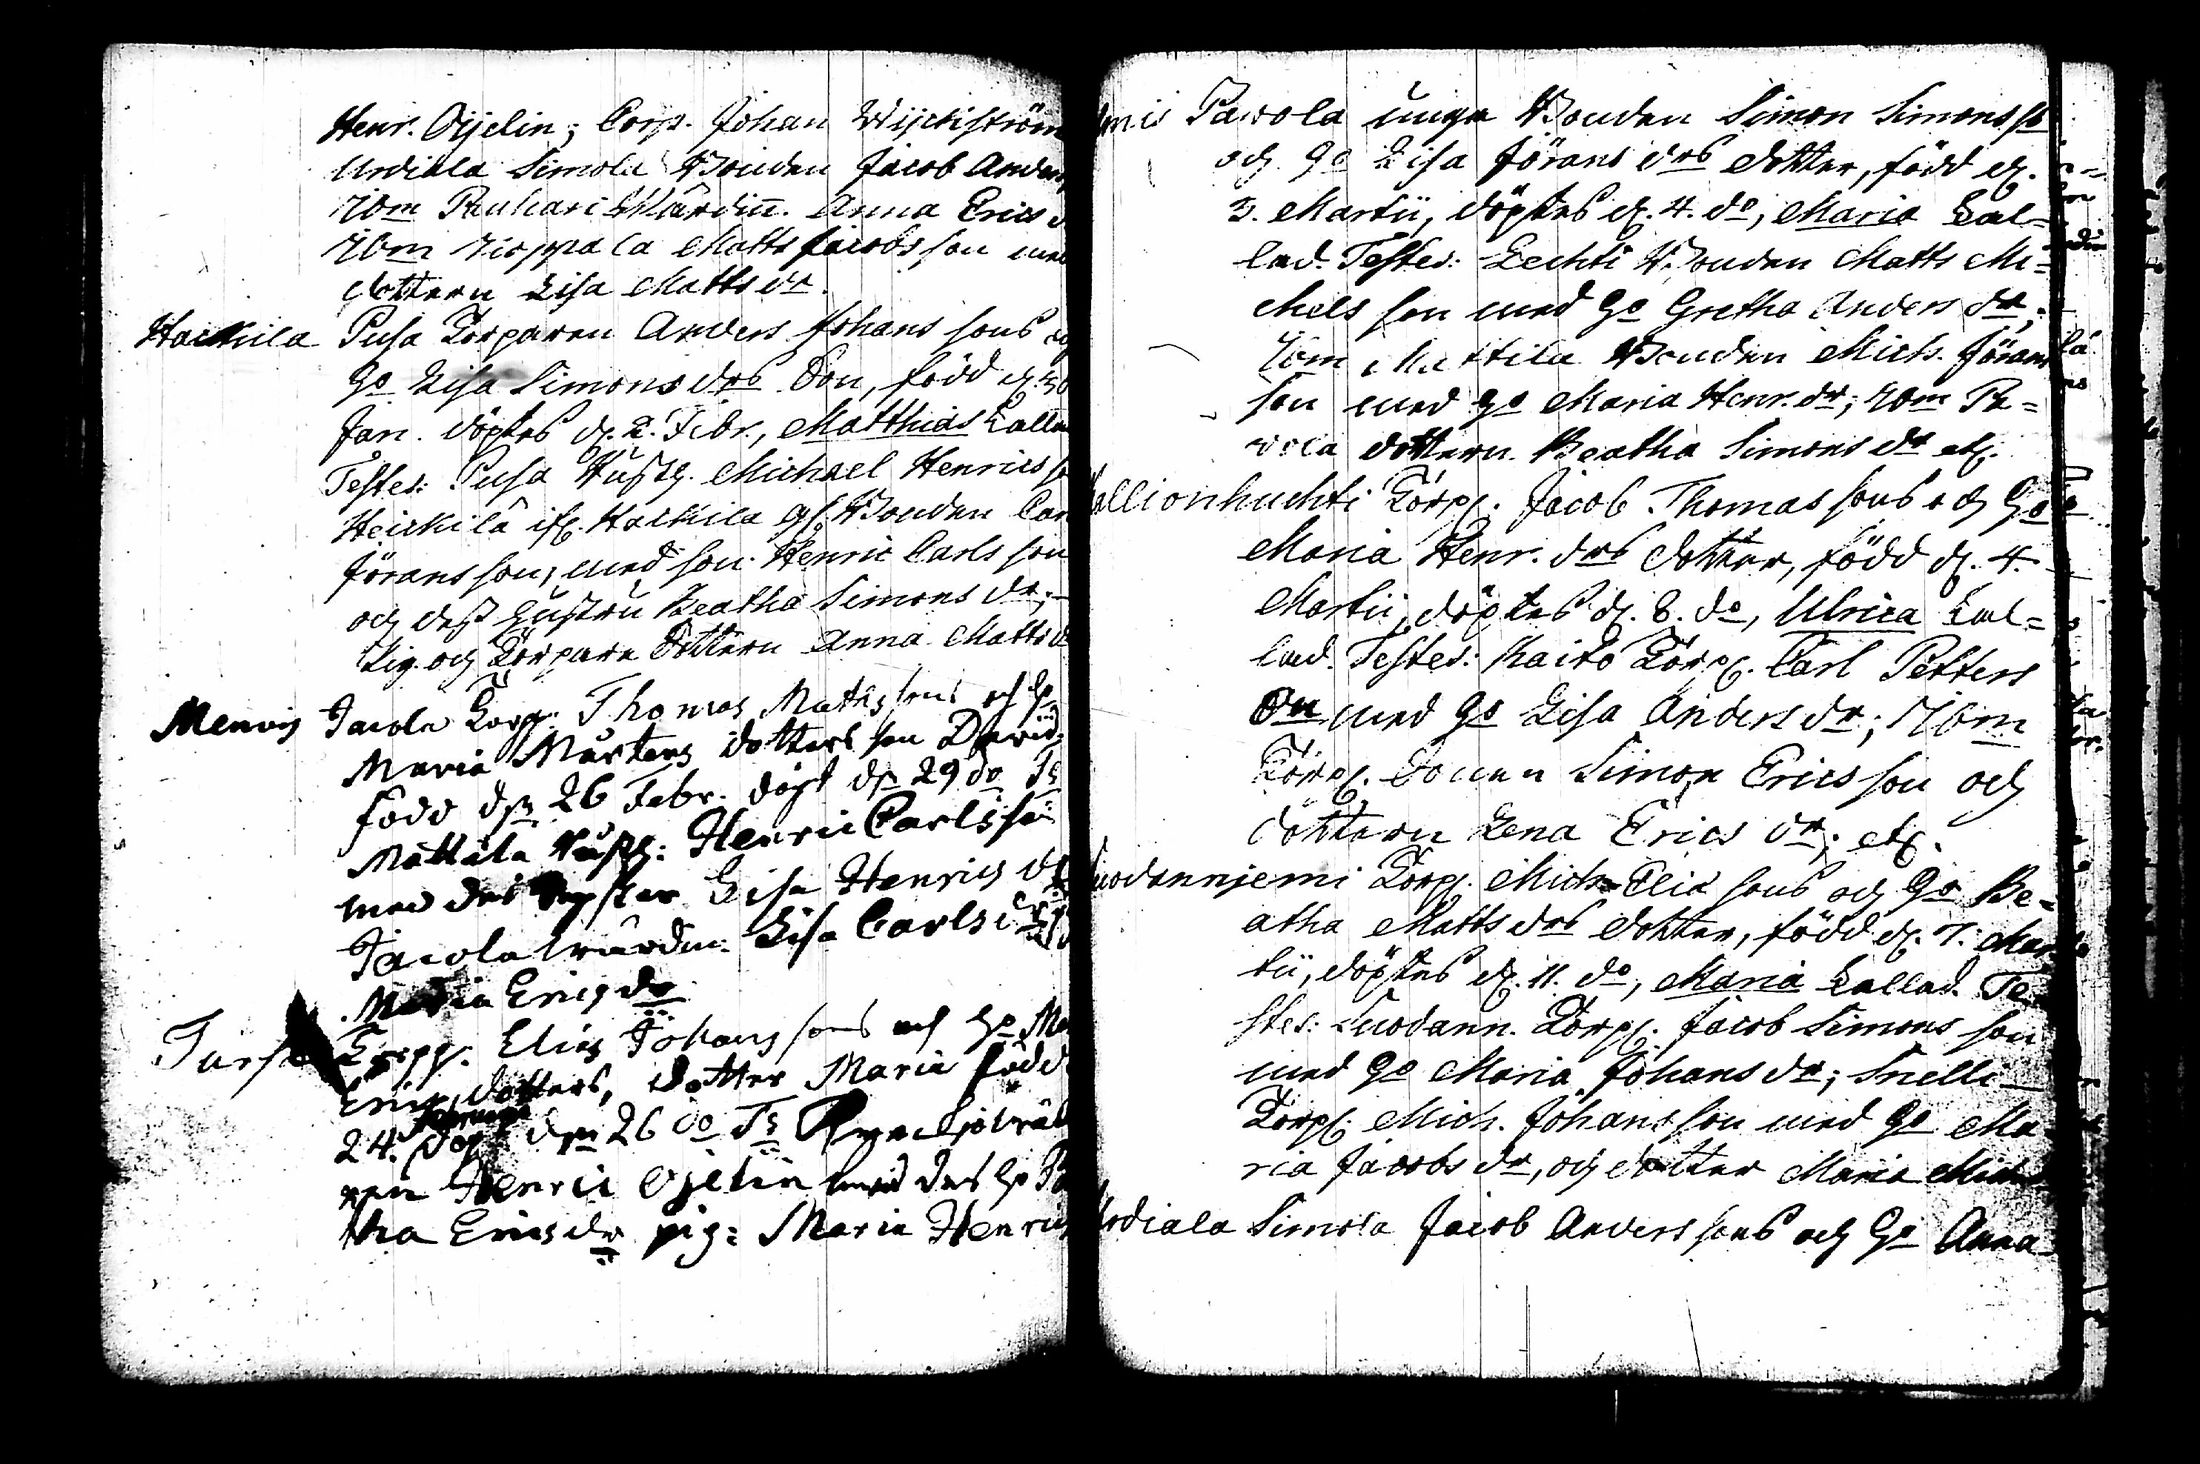 Henr. Oijelin; Corp. Johan Wijckström
Urdiala Simola Bonden Jacob Anders
ibm Pauhari Wärdin. Anna Erics d
ibm Nioppala Matts Jacobsson med
dottern Lisa Matts dr.
Haickila Pusa Torparen Anders Johans sons och
Ho Lisa Simons drs Son, född d. 30
Jan. döptes d. 2. Febr., Matthias Kallad
Testes: Pusa Husb. Michael Henrics so
Heickilä
Jöransson, med son Henric Carls son
och dess hustru Beatha Simons dr;
Pig. och Torpare dottern Anna Matts d
Menois Jacola Torp. Thomas Mathssons och Ho
Maria Mårtens dotters son David
född dn 26 Febr. döpt dn 29 do Ts
Mattila Husb: Henric Carlsson
med des Syster Lisa Henrics dr
Jacola wärdin: Lisa Carls dr
Maria Erics dr
Torpp. Elias Johans sons och Ho Ma
Erics dotters, dotter Maria född
24. döpt dn 26 do Ts
Henric Ojelin med des Ho
tha Erics dr pig: Maria Henrics
mis Pawola unga Bonden Simon Simons so
och Ho Lisa Jörans drs dotter, född d.
3. Martii, döptes d. 4. do, Maria Kal=
lad. Testes: Lechti Bonden Matts Mi=
chels son med Ho Gretha Anders dr;
ibm Mattila Bonden Mich. Jörans
son med Ho Maria Henr. dr; ibm Pa=
wola dottern Beatha Simons dr etc.
allionhuchti Torp. Jacob Thomas sons och Ho
Maria Henr. drs dotter, född d. 4.
Martii, döptes d. 8. do, Ulrica Kal=
lad. Testes: Kaito Torp. Carl Petters
Son med Ho Lisa Anders dr; ibm
Torp. Sonen Simon Ericsson och
dottern Lena Erics dr; etc.
uodannjemi Torp. Mich. Elia sons och Ho Be=
atha Matts drs dotter, född d. 7. Mar
tii, döptes d. 11. do, Maria Kallad. Te
stes: Suodann. Torp. Jacob Simons son
med Ho Maria Johans dr; Snelli
Torp. Mich. Johansson med Ho Ma
ria Jacobs dr, och dotter Maria Mich
Urdiala Simola Jacob Anders sons och Ho Anna